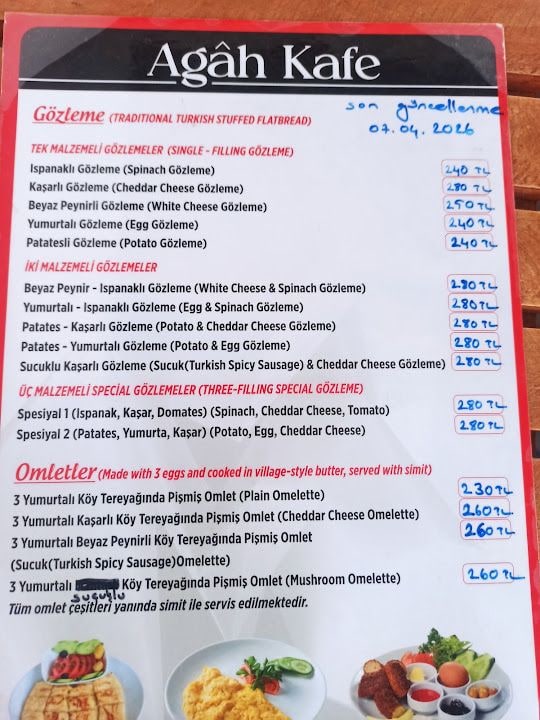 Agâh Kafe
Gözleme (TRADITIONAL TURKISH STUFFED FLATBREAD)
son güncellenme
07.04.2026
TEK MALZEMELİ GÖZLEMELER (SINGLE - FILLING GÖZLEME)
Ispanaklı Gözleme (Spinach Gözleme) 240 TL
Kaşarlı Gözleme (Cheddar Cheese Gözleme) 280 TL
Beyaz Peynirli Gözleme (White Cheese Gözleme) 250 TL
Yumurtalı Gözleme (Egg Gözleme) 240 TL
Patatesli Gözleme (Potato Gözleme) 240 TL
İKİ MALZEMELİ GÖZLEMELER
Beyaz Peynir - Ispanaklı Gözleme (White Cheese & Spinach Gözleme) 280 TL
Yumurtalı - Ispanaklı Gözleme (Egg & Spinach Gözleme) 280 TL
Patates - Kaşarlı Gözleme (Potato & Cheddar Cheese Gözleme) 280 TL
Patates - Yumurtalı Gözleme (Potato & Egg Gözleme) 280 TL
Sucuklu Kaşarlı Gözleme (Sucuk(Turkish Spicy Sausage) & Cheddar Cheese Gözleme) 280 TL
ÜÇ MALZEMELİ SPECİAL GÖZLEMELER (THREE-FILLING SPECIAL GÖZLEME)
Spesiyal 1 (Ispanak, Kaşar, Domates) (Spinach, Cheddar Cheese, Tomato) 280 TL
Spesiyal 2 (Patates, Yumurta, Kaşar) (Potato, Egg, Cheddar Cheese) 280 TL
Omletler (Made with 3 eggs and cooked in village-style butter, served with simit)
3 Yumurtalı Köy Tereyağında Pişmiş Omlet (Plain Omelette) 230 TL
3 Yumurtalı Kaşarlı Köy Tereyağında Pişmiş Omlet (Cheddar Cheese Omelette) 260 TL
3 Yumurtalı Beyaz Peynirli Köy Tereyağında Pişmiş Omlet 260 TL
(Sucuk(Turkish Spicy Sausage)Omelette)
3 Yumurtalı Köy Tereyağında Pişmiş Omlet (Mushroom Omelette) 260 TL
sucuklu
Tüm omlet çeşitleri yanında simit ile servis edilmektedir.